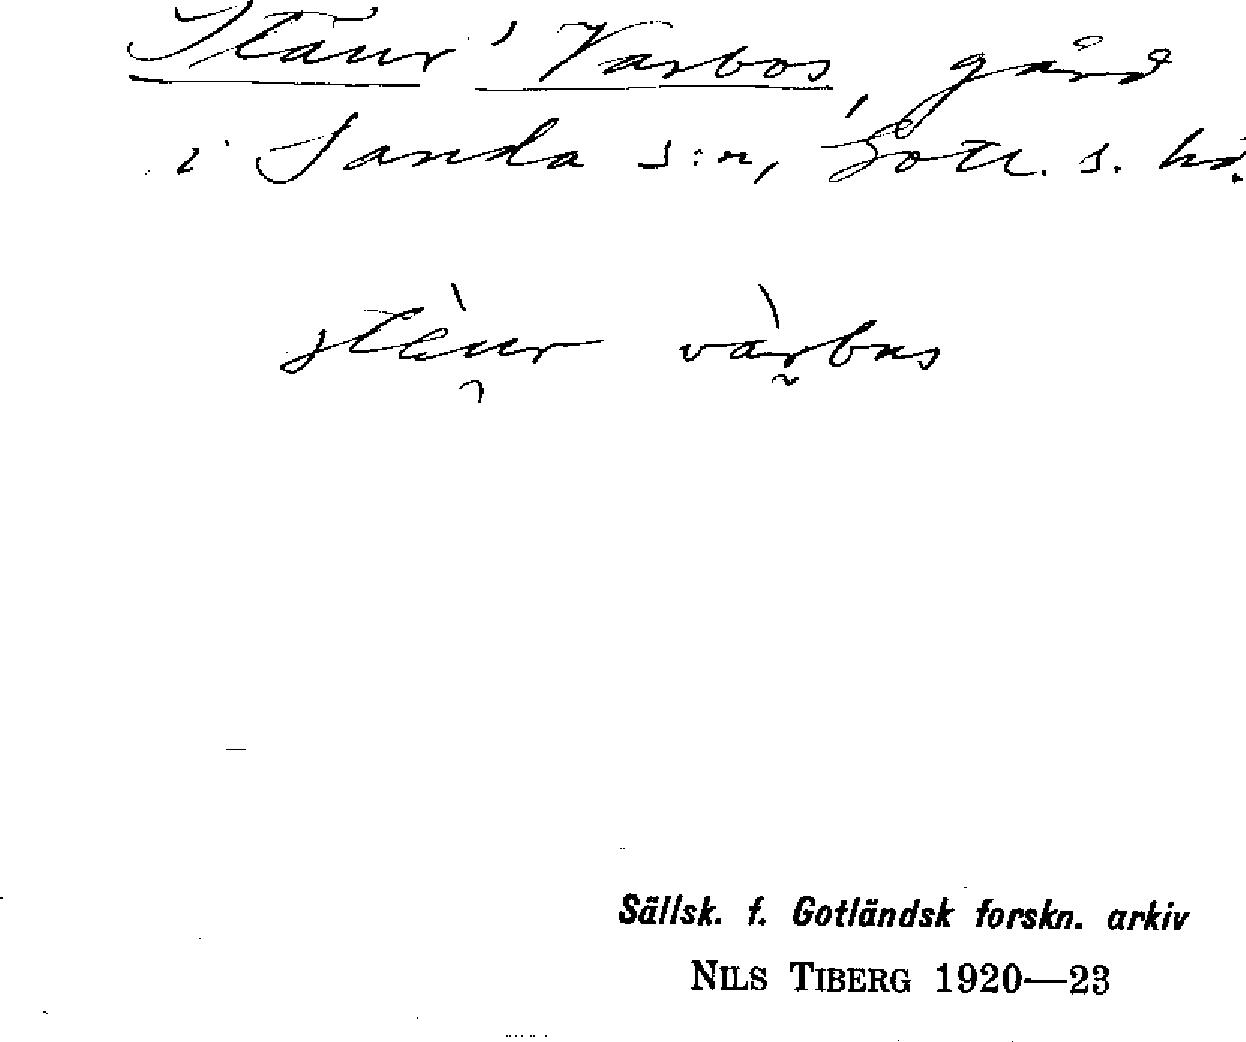 Staur' Varbos, gård
i Sanda s:n, Gotl. s. hd.
stèu̯r vàrbus
Sällsk. f. Gotländsk forskn. arkiv
NILS TIBERG 1920—23